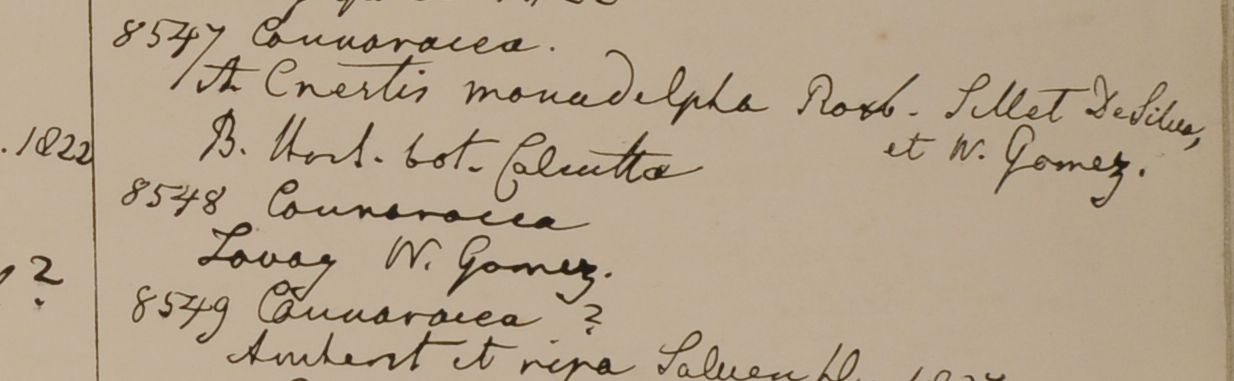 8547 Connaracea.
A Cnestis monadelpha Roxb. Sillet DeSilva,
et W. Gomez.
. 1822
B. Hort. bot. Calcutta
8548 Connaracea
Tavoy W. Gomez.
?
8549 Connaracea ?
Amherst et ripa Saluen fl. 1827